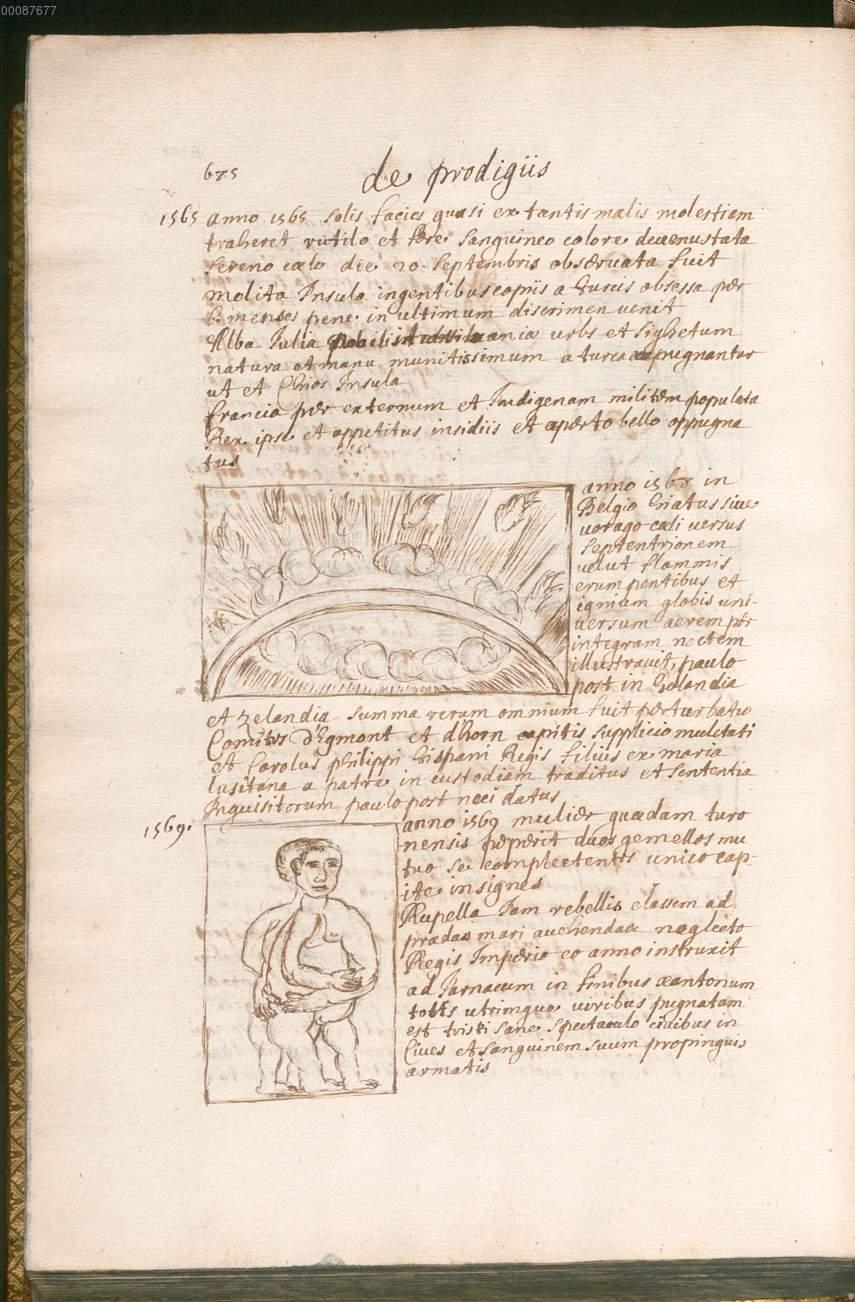 00087677
675
de prodigiis
1565 anno 1565 solis facies quasi ex tantis malis molestiam
traheret rutilo et fere sanguineo colore devenustata
sereno cœlo die 20. septembris observata fuit
molita Insula ingentibus copiis a turcis obsessa per
menses pene in ultimum discrimen venit
Alba Iulia nobilis urbs et sighetum
natura et manu munitissimum a turca expugnantur
ut et Chios Insula
francia per externum et Indigenam militem populata
Rex ipse et appetitus insidiis et aperto bello oppugna
tus
anno 1568 in
Belgio hiatus sive
vorago cæli versus
septentrionem
velut flammis
erumpentibus et
ignium globis uni-
versum aerem per
integram noctem
illustravit, paulo
post in holandia
et zelandia summa rerum omnium fuit perturbatio
Comites d'Egmont et dhorn capitis supplicio mulctati
et Carolus philippi hispani Regis filius ex maria
lusitana a patre in custodiam traditus et sententia
Inquisitorum paulo post neci datus
1569.
anno 1569 mulier quædam turo
nensis peperit duos gemellos mu
tuo se complectentes unico cap-
ite insignes
Rupella Jam rebellis classem ad
prædas mari avehendas neglecto
Regis Imperio eo anno instruxit
ad Jarnacum in finibus xantonum
totis utrimque viribus pugnatum
est tristi sane spectaculo civibus in
Cives et sanguinem suum propinquis
armatis